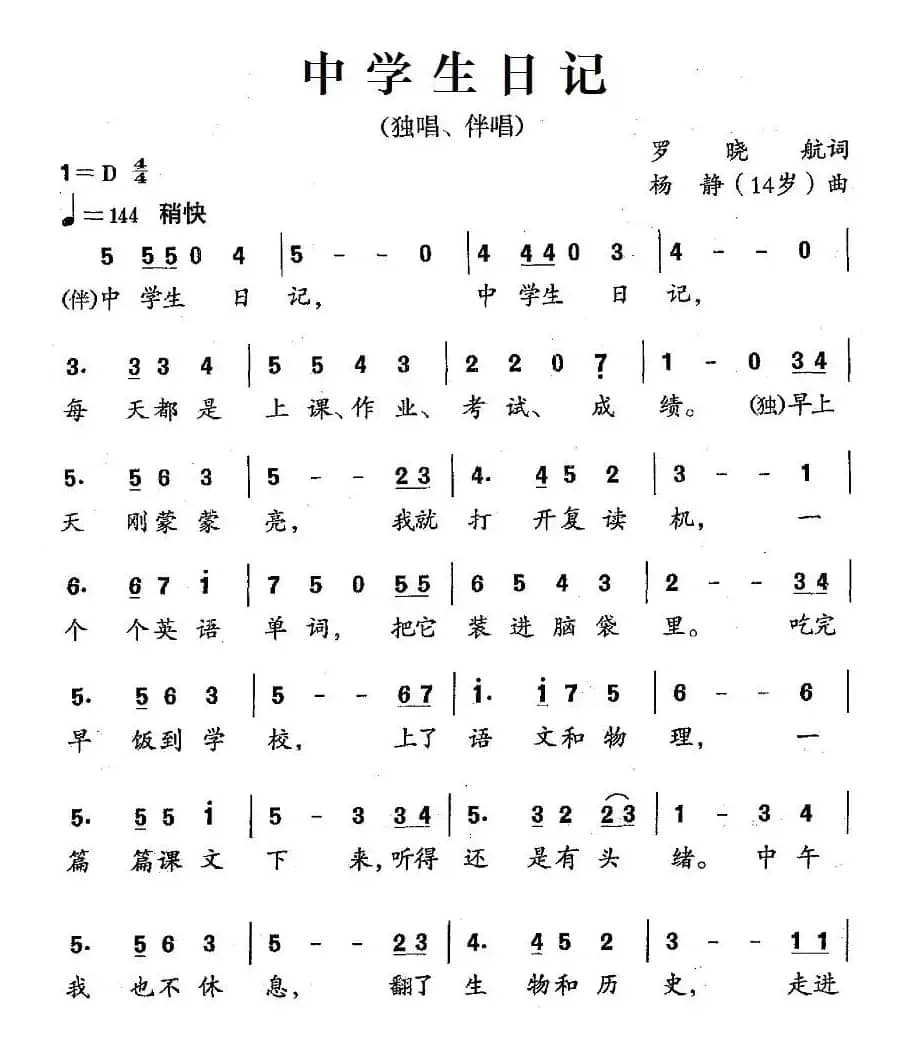 中学生日记
(独唱、伴唱)
罗 晓 航词
1=D 4/4
杨 静(14岁)曲
♩=144 稍快
5 5 5 0 4 | 5 - - 0 | 4 4 4 0 3 | 4 - - 0 |
(伴)中 学生 日 记, 中 学生 日 记,
3. 3 3 4 | 5 5 4 3 | 2 2 0 7̣ | 1 - 0 3 4 |
每 天都 是 上 课、作 业、考 试、 成 绩。 (独)早上
5. 5 6 3 | 5 - - 2 3 | 4. 4 5 2 | 3 - - 1 |
天 刚蒙 蒙 亮, 我就 打 开复 读 机, 一
6. 6 7 i | 7 5 0 5 5 | 6 5 4 3 | 2 - - 3 4 |
个 个英 语 单 词, 把它 装 进 脑 袋 里。 吃完
5. 5 6 3 | 5 - - 6 7 | i. i 7 5 | 6 - - 6 |
早 饭到 学 校, 上了 语 文和 物 理, 一
5. 5 5 i | 5 - 3 3 4 | 5. 3 2 2 3 | 1 - 3 4 |
篇 篇课 文 下 来,听得 还 是有 头 绪。 中 午
5. 5 6 3 | 5 - - 2 3 | 4. 4 5 2 | 3 - - 1 1 |
我 也不 休 息, 翻了 生 物和 历 史, 走进